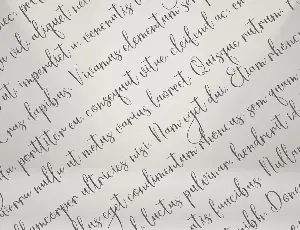 nec
vel. aliquet nec
ut. imperdiet a. venenatis
Cras dapibus. Vivamus elementum
porttitor eu. consequat vitae. eleifend ac. en
nulla ut metus varius laoreet. Quisque rutrum.
ullamcorper ultricies nisi. Nam eget dui. Etiam rhonc
tellus eget condimentum rhoncus. sem quam
luctus pulvinar. hendrerit id
faucibus. Nullam
nibh. Don